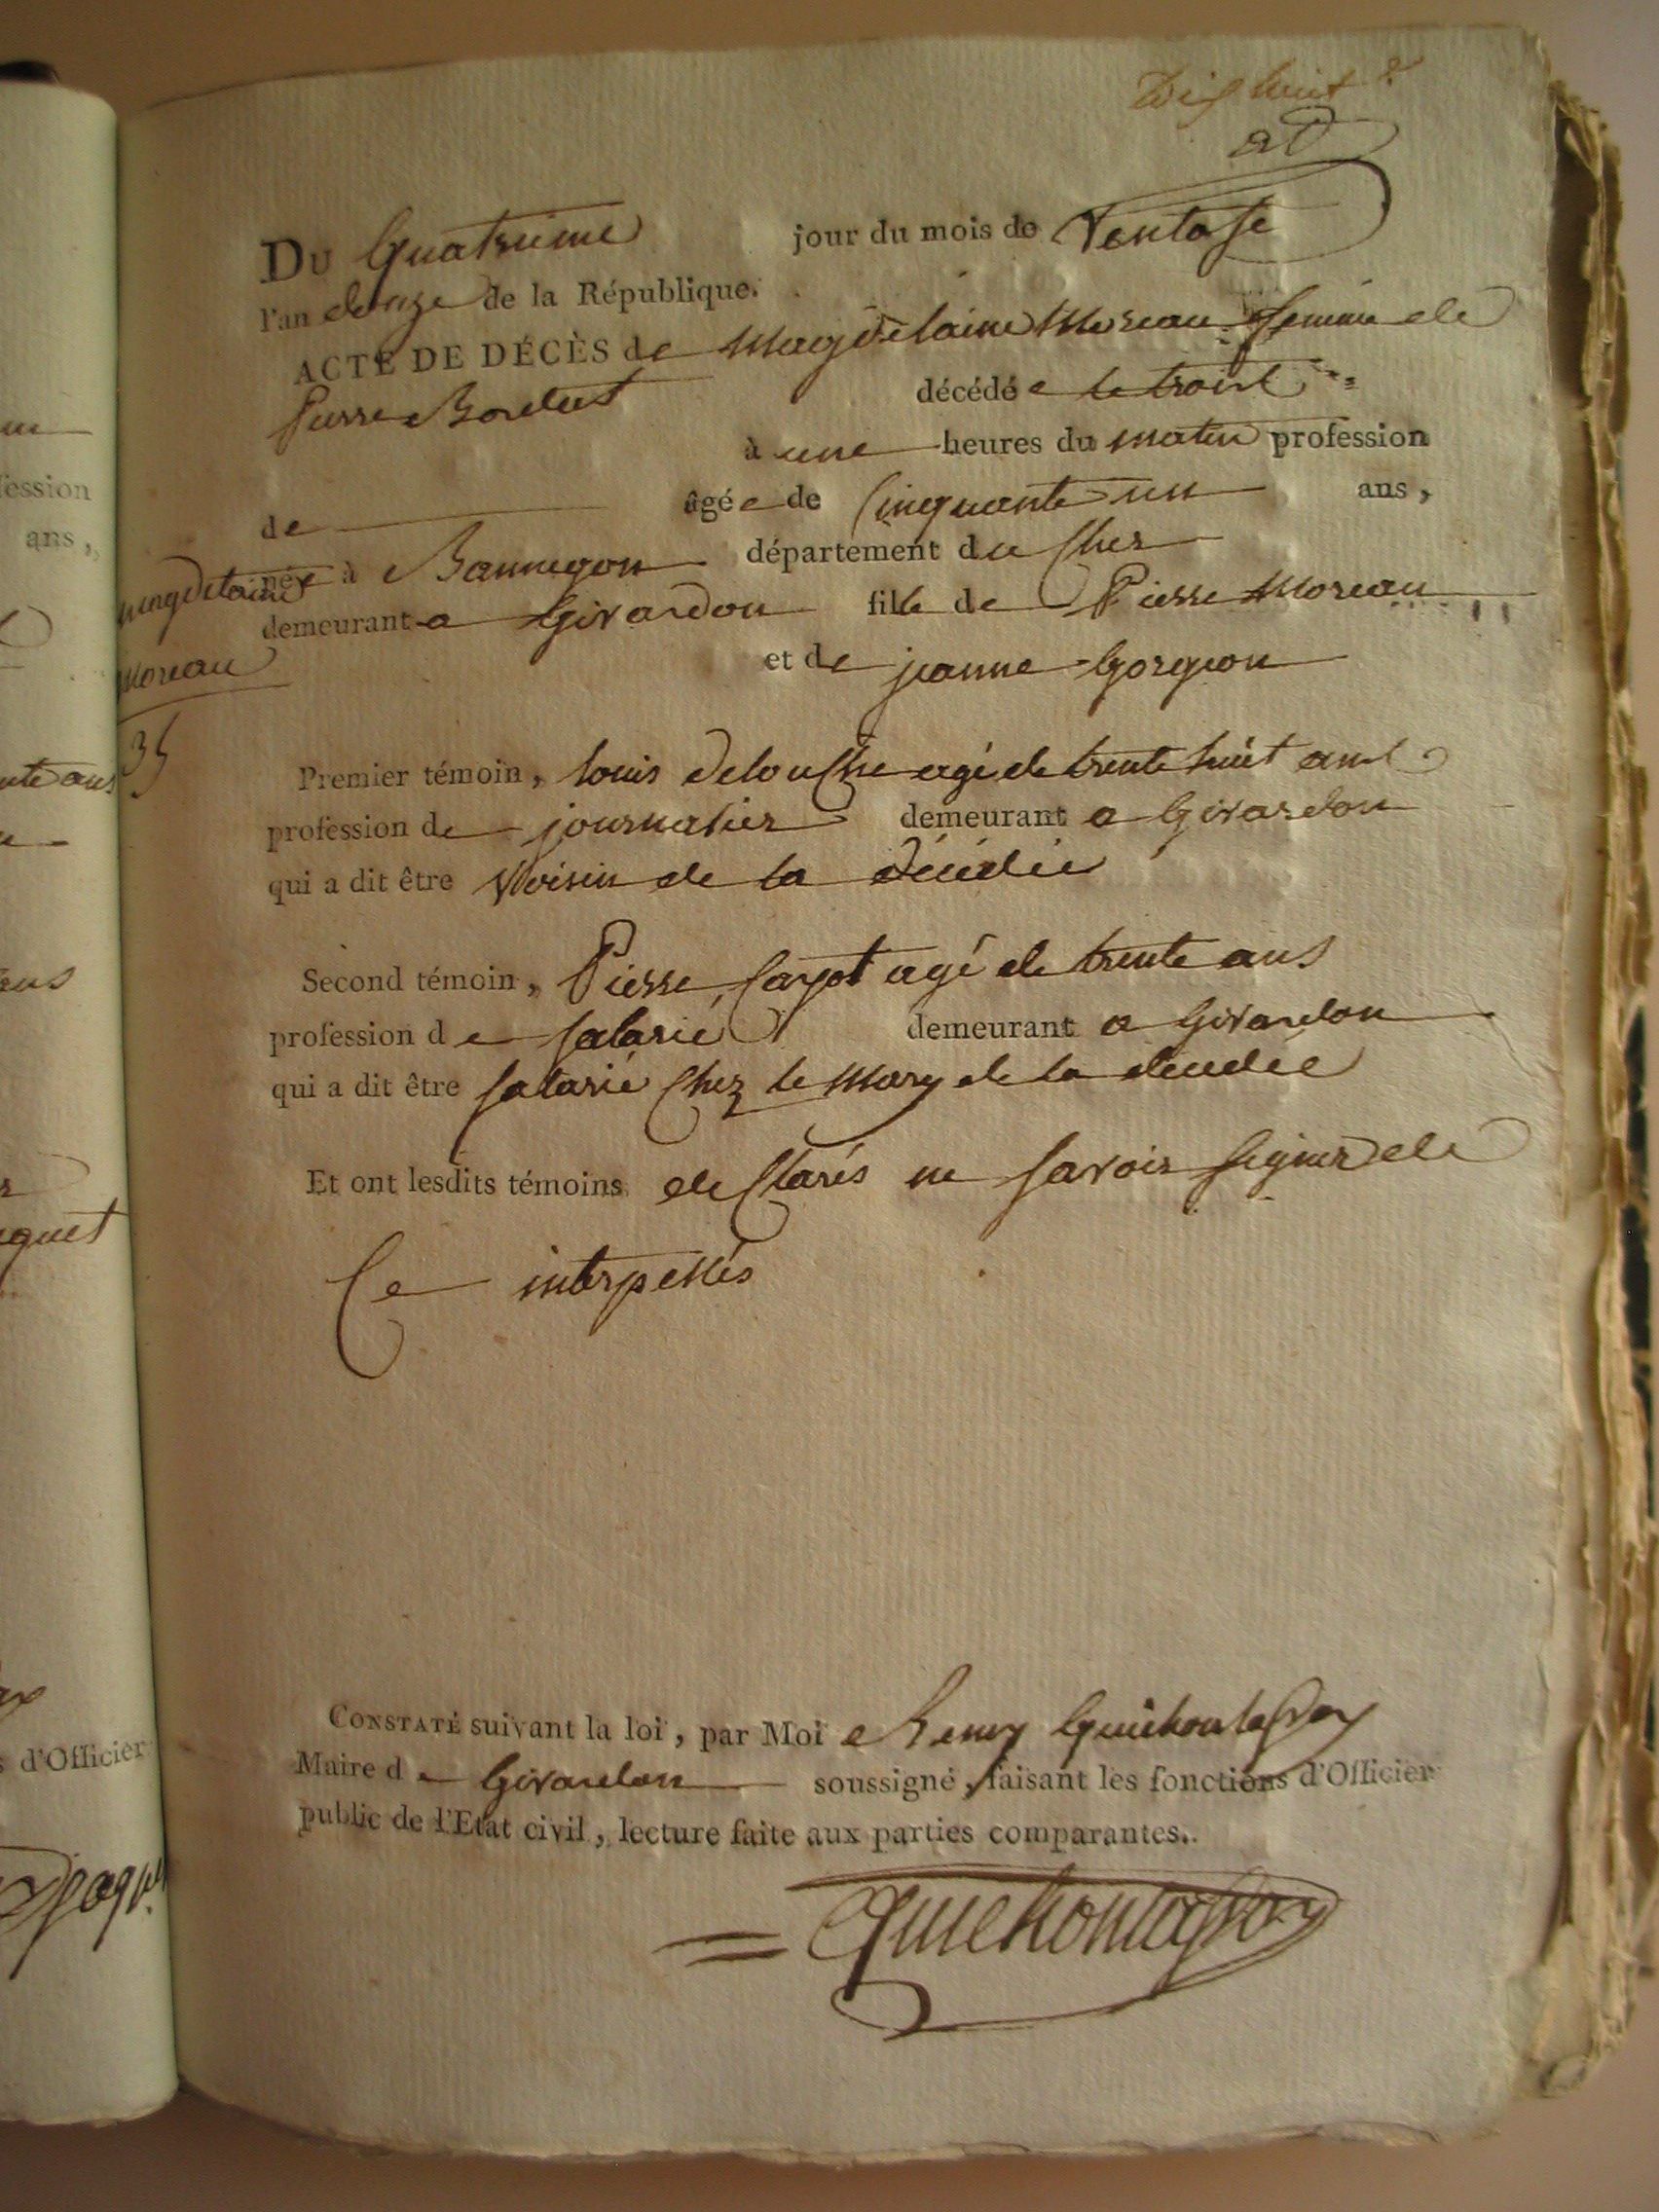 Dix huit
Du Quatrieme jour du mois de Ventose
l'an douze de la République.
ACTE DE DÉCÈS de Magdelaine Moreau femme de
Pierre Bordet décédée le trois
à une heures du matin profession
de âgée de Cinquante un ans,
née à Bannegon département du Cher
demeurant a Givardon fille de Pierre Moreau
et de jeanne Gorgeon
magdelaine
Moreau
35
Premier témoin, louis delouche agé de trente huit ans
profession de journalier demeurant a Givardon
qui a dit être Voisin de la décédée
Second témoin, Pierre agé de trente ans
profession de salarié demeurant a Givardon
qui a dit être salarié Chez le Mary de la decedée
Et ont lesdits témoins declarés ne savoir signer de
Ce interpellés
CONSTATÉ suivant la loi, par Moi henry
Maire de Givardon soussigné, faisant les fonctions d'Officier
public de l'Etat civil, lecture faite aux parties comparantes.
fession
ans,
ans
d'Officier